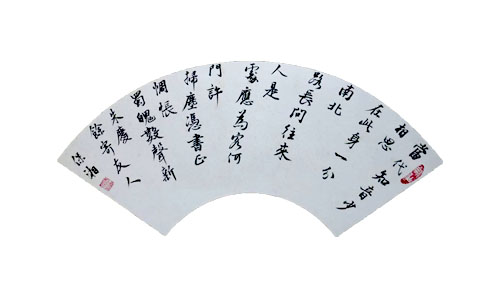 當代知音少
相思
在此身一分
南北
路長問往來
人是
處應為客何
門許
掃塵憑書正
惆悵
蜀魄數聲新
朱慶
餘寄友人